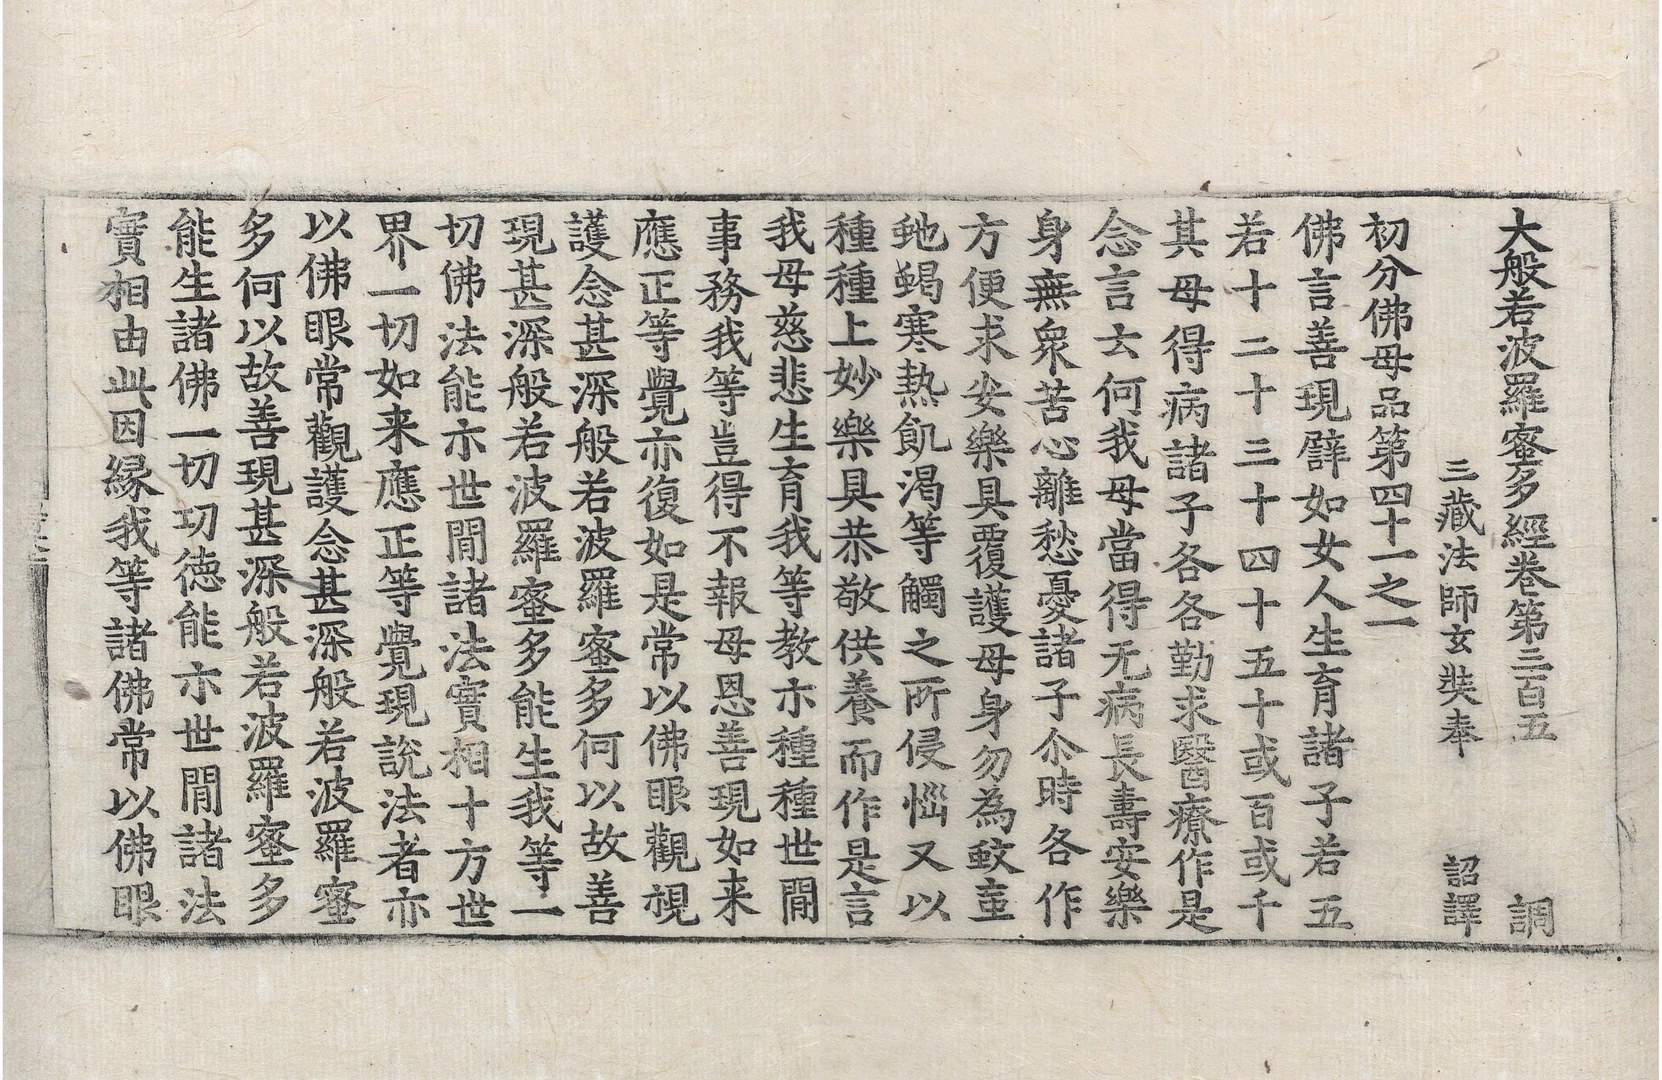 大般若波羅蜜多經卷第三百五 調
三藏法師玄奘奉 詔譯
初分佛母品第四十一之一
佛言善現譬如女人生育諸子若五
若十二十三十四十五十或百或千
其母得病諸子各各勤求醫療作是
念言云何我母當得无病長壽安樂
身無衆苦心離愁憂諸子尒時各作
方便求安樂具覆護母身勿為蚊䖟
虵蝎寒熱飢渴等觸之所侵惱又以
種種上妙樂具恭敬供養而作是言
我母慈悲生育我等教示種種世間
事務我等豈得不報母恩善現如来
應正等覺亦復如是常以佛眼觀視
護念甚深般若波羅蜜多何以故善
現甚深般若波羅蜜多能生我等一
切佛法能示世間諸法實相十方世
界一切如来應正等覺現說法者亦
以佛眼常觀護念甚深般若波羅蜜
多何以故善現甚深般若波羅蜜多
能生諸佛一切功徳能示世間諸法
實相由此因縁我等諸佛常以佛眼